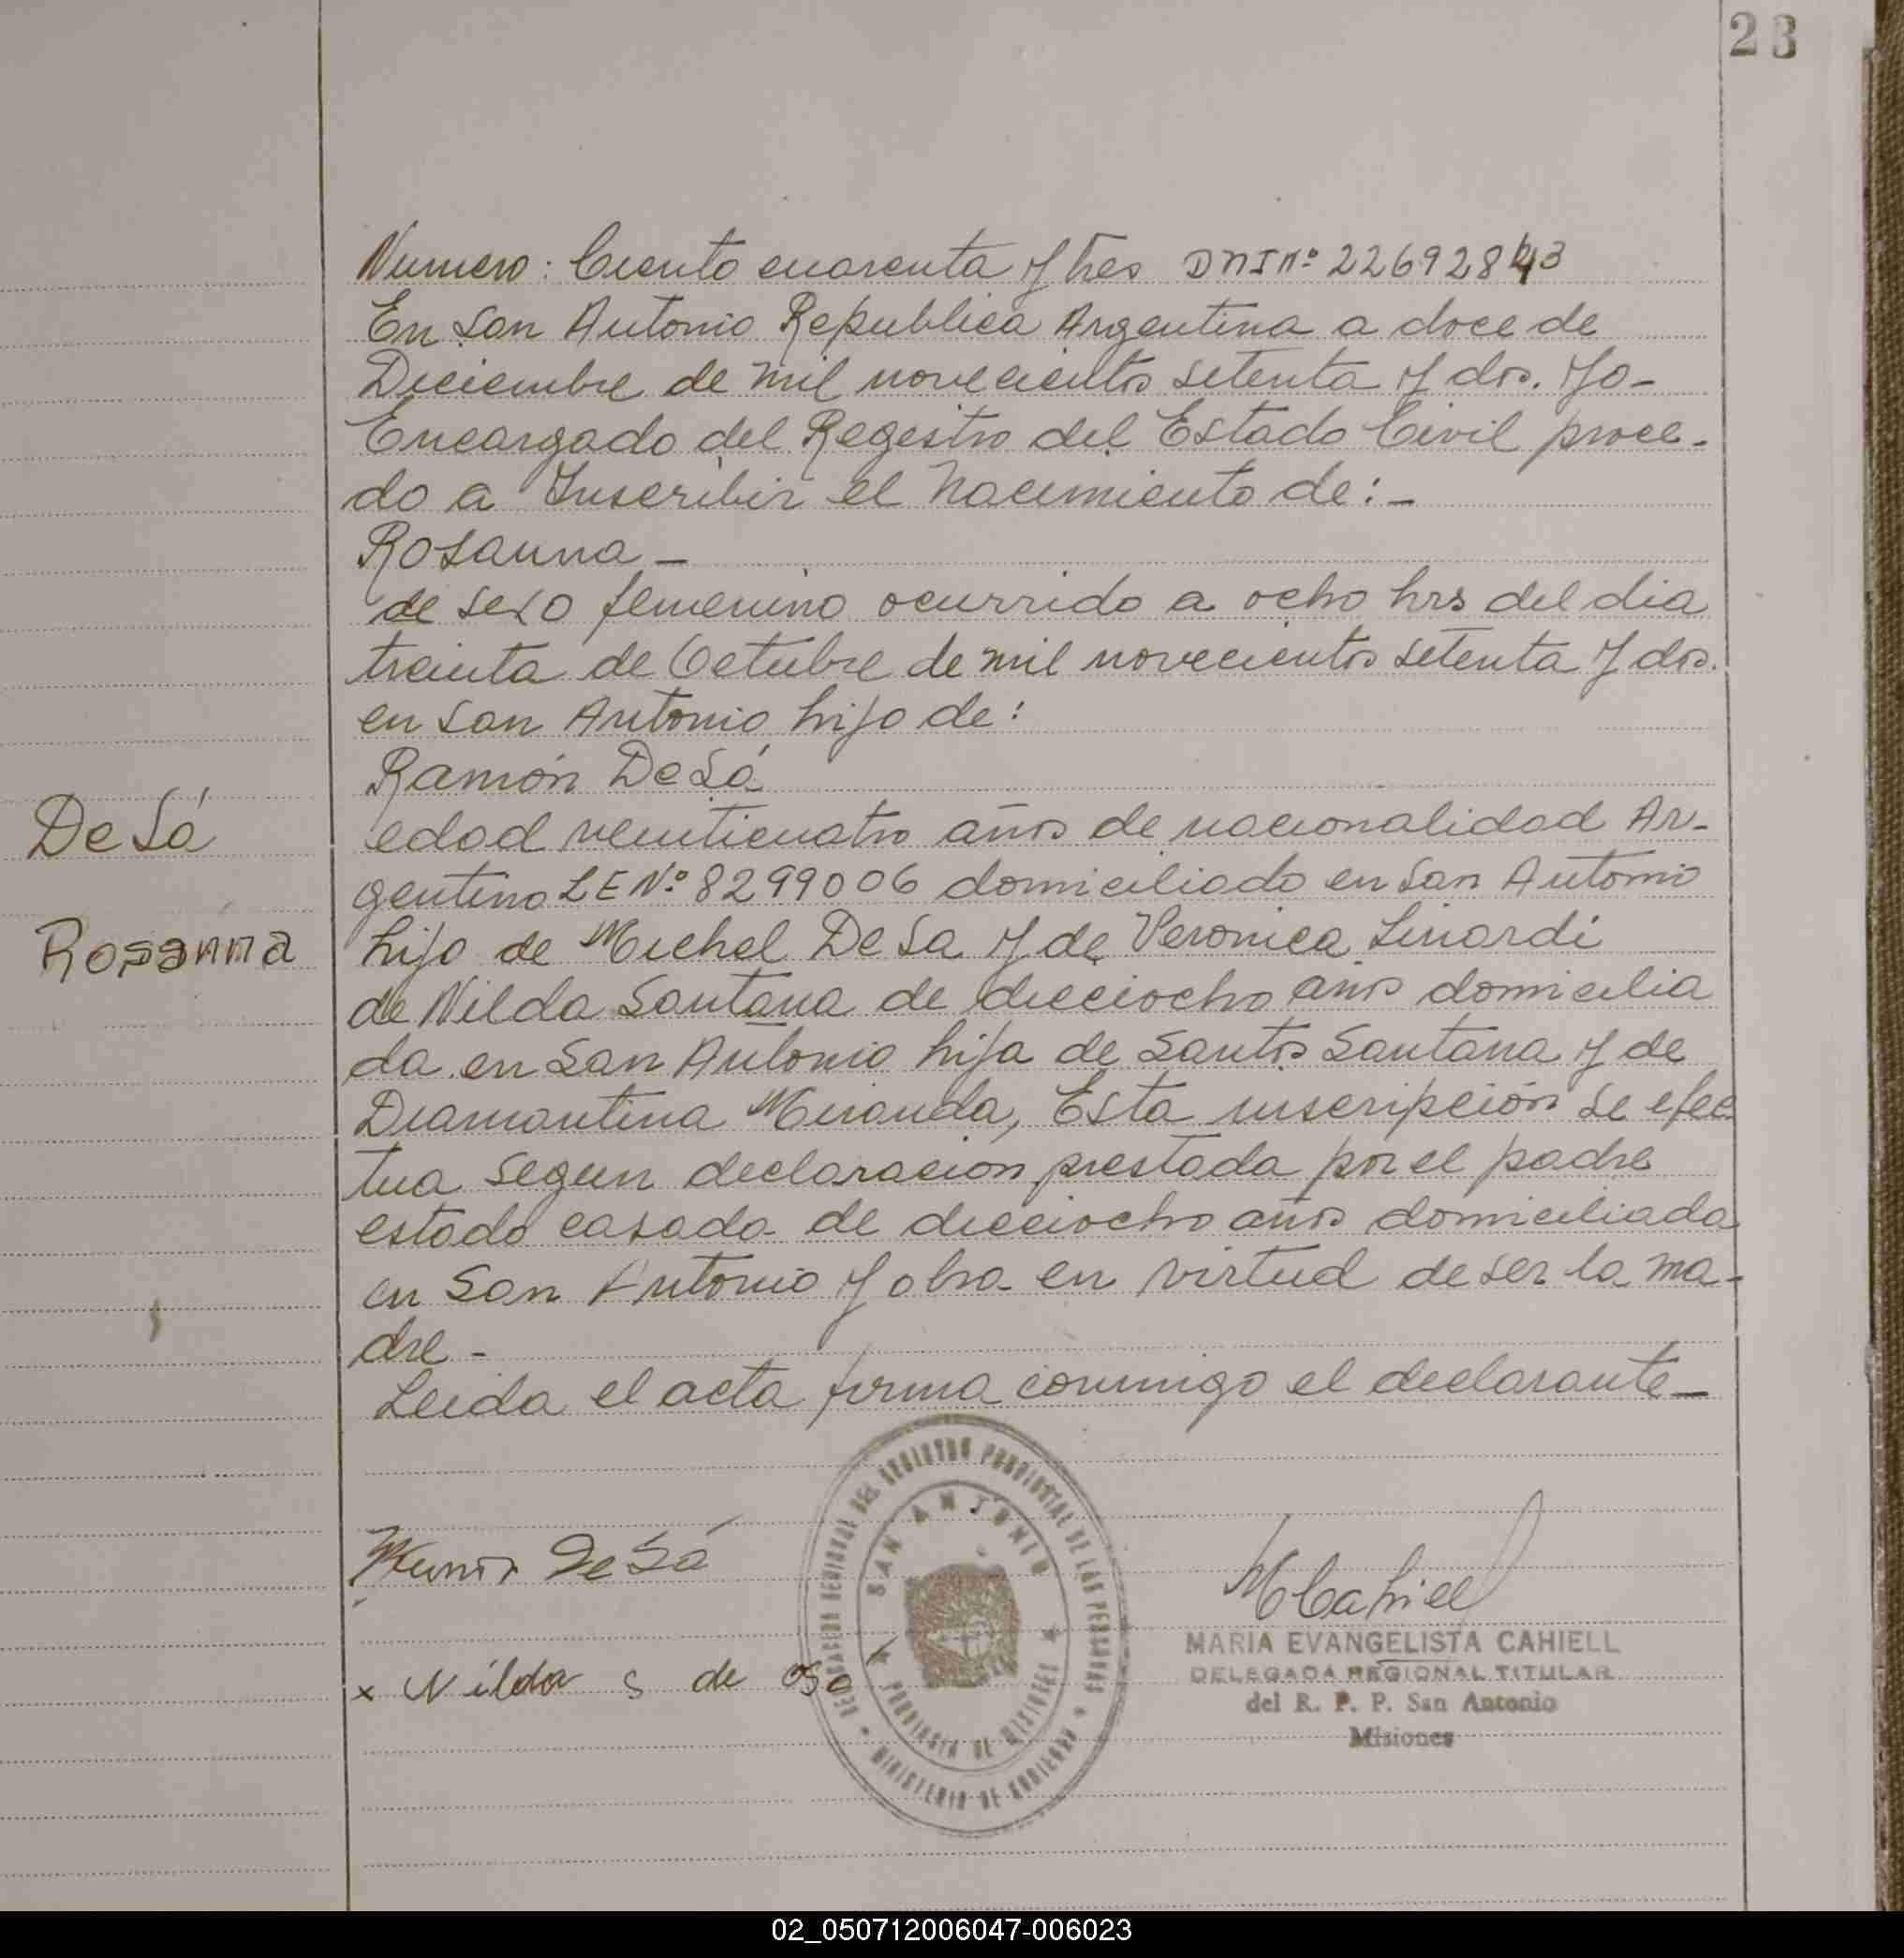 23
Numero: Ciento cuarenta y tres DNI Nº 22692843
En San Antonio Republica Argentina a doce de
Diciembre de mil novecientos setenta y dos. Yo-
Encargado del Regestro del Estado Civil proce-
do a Inscribir el Nacimiento de:-
Rosanna-
de sexo femenino ocurrido a ocho hrs del dia
treinta de Octubre de mil novecientos setenta y dos.
en San Antonio hijo de:
Ramón De Sá
De Sá
edad venticuatro años de nacionalidad Ar-
gentino L E Nº 8299006 domiciliado en San Antonio
Rosanna
hijo de Michel De Sa y de Veronica Linardi
de Nilda Santana de dieciocho años domicilia
da en San Antonio hija de Santos Santana y de
Diamantina Miranda, Esta inscripción se efec
tua segun declaracion prestada por el padre
estado casada de dieciocho años domiciliada
en San Antonio y obra en virtud de ser la ma-
dre-
Leida el acta firma conmigo el declarante-
De Sá
x Nilda S de
DELEGACION REGIONAL DEL REGISTRO PROVINCIAL DE LAS PERSONAS
SAN ANTONIO
PROVINCIA DE MISIONES
MINISTERIO DE GOBIERNO
MCahiell
MARIA EVANGELISTA CAHIELL
DELEGADA REGIONAL TITULAR
del R. P. P. San Antonio
Misiones
02_050712006047-006023